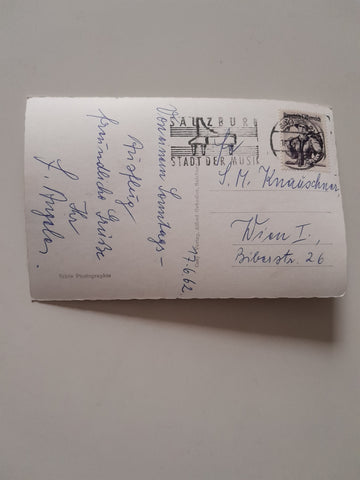 SALZBURG
STADT DER MUSIK
Von einem Sonntags-
Ausflug
freundliche Grüße
Ihr
17.6.62
S. M. Knauschner,
Wien I.,
Biberstr. 26
Echte Photographie